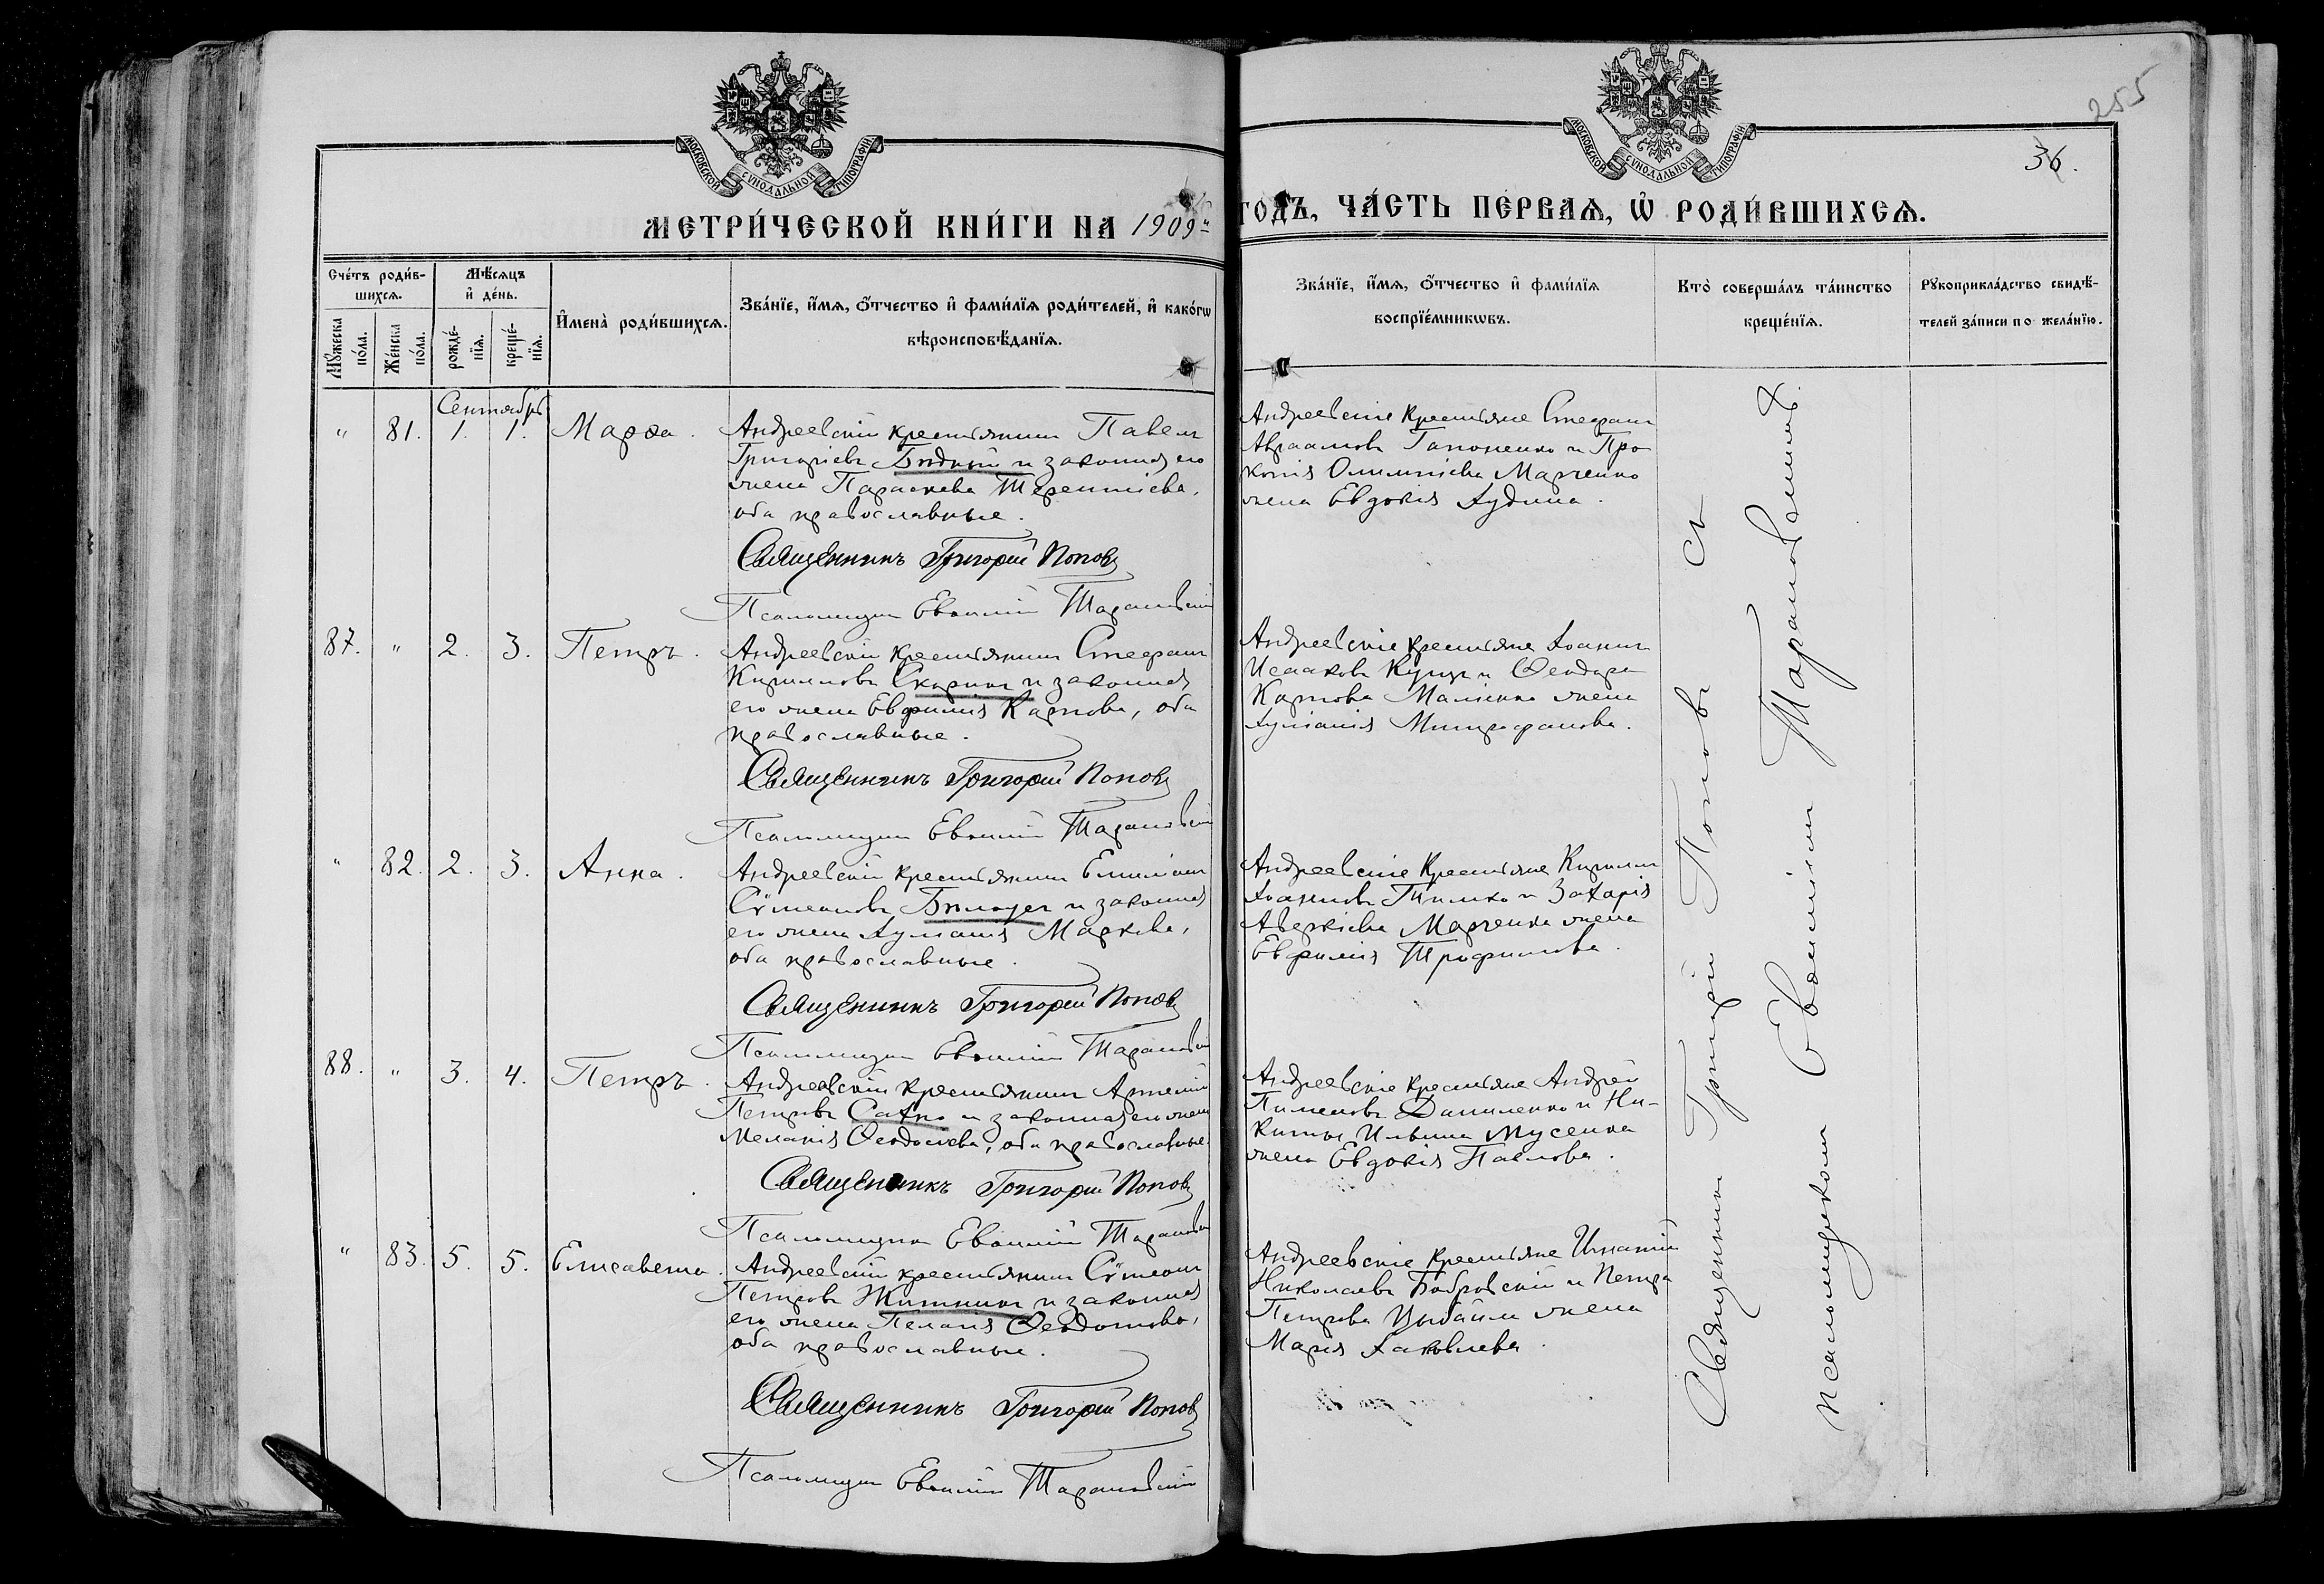 МОСКОВСКОЙ СУНОДАЛЬНОЙ ТИПОГРАФІИ
МОСКОВСКОЙ СУНОДАЛЬНОЙ ТИПОГРАФІИ
255
36.
МЕТРИ́ЧЕСКОЙ КНИ́ГИ НА 1909й
ГОДЪ, ЧА́СТЬ ПЕ́РВАѦ, Ѡ҆ РОДИ́ВШИХСѦ.
Сче́тъ роди́в-
шихсѧ.
Мꙋ́жеска
по́ла.
Же́нска
по́ла.
Мѣ́сѧцъ
и҆ де́нь.
рожде́-
нїѧ.
креще́-
нїѧ.
И҆мена̀ роди́вшихсѧ.
Зва́нїе, и҆́мѧ, ѻ҆́тчество и҆ фами́лїѧ роди́телей, и҆ како́гѡ
вѣроисповѣ́данїѧ.
Зва́нїе, и҆́мѧ, ѻ҆́тчество и҆ фами́лїѧ
воспрїе́мникѡвъ.
Кто̀ соверша́лъ та́инство
креще́нїѧ.
Рꙋкоприкла́дство свидѣ́-
телей за́писи по жела́нїю.
Сентябрь
" 81. 1. 1. Марѳа.
Андреевскій крестьянинъ Павелъ
Григоріевъ Бѣдный и законная его
жена Параскева Терентіева,
оба православные.
Священникъ Григорій Поповъ
Псаломщикъ Евѳимій Тарановскій
Андреевскіе крестьяне Стефанъ
Авраамовъ Гапоненко и Про-
копія Олимпіева Марченко
жена Евдокія Іудина.
87. " 2. 3. Петръ.
Андреевскій крестьянинъ Стефанъ
Кирилловъ Скорикъ и законная
его жена Евфимія Карпова, оба
православные.
Священникъ Григорій Поповъ
Псаломщикъ Евѳимій Тарановскій
Андреевскіе крестьяне Іоаннъ
Исааковъ Куцъ и Ѳеодора
Карпова жена
Іуліанія Митрофанова.
" 82. 2. 3. Анна.
Андреевскій крестьянинъ Емиліанъ
Сѵмеоновъ Бѣлоусъ и законная
его жена Іуліанія Маркова,
оба православные.
Священникъ Григорій Поповъ
Псаломщикъ Евѳимій Тарановскій
Андреевскіе крестьяне Кириллъ
Іоанновъ Тимко и Захарія
Аверкіева Марченка жена
Евфимія Трофимова.
88. " 3. 4. Петръ.
Андреевскій крестьянинъ Артемій
Петровъ Сахно и законная его жена
Меланія Ѳеодосіева, оба православные.
Священникъ Григорій Поповъ
Псаломщикъ Евѳимій Тарановскій
Андреевскіе крестьяне Андрей
Пименовъ Даниленко и Ни-
киты Ильина Мусенка
жена Евдокія Павлова.
" 83. 5. 5. Елисавета.
Андреевскій крестьянинъ Сѵмеонъ
Петровъ Житникъ и законная
его жена Пелагія Ѳеодотова,
оба православные.
Священникъ Григорій Поповъ
Псаломщикъ Евѳимій Тарановскій
Андреевскіе крестьяне Игнатій
Николаевъ Бобровскій и Петра
Петрова жена
Марія Іаковлева.
Священникъ Григорій Поповъ съ
псаломщикомъ Евѳиміемъ Тарановскимъ.